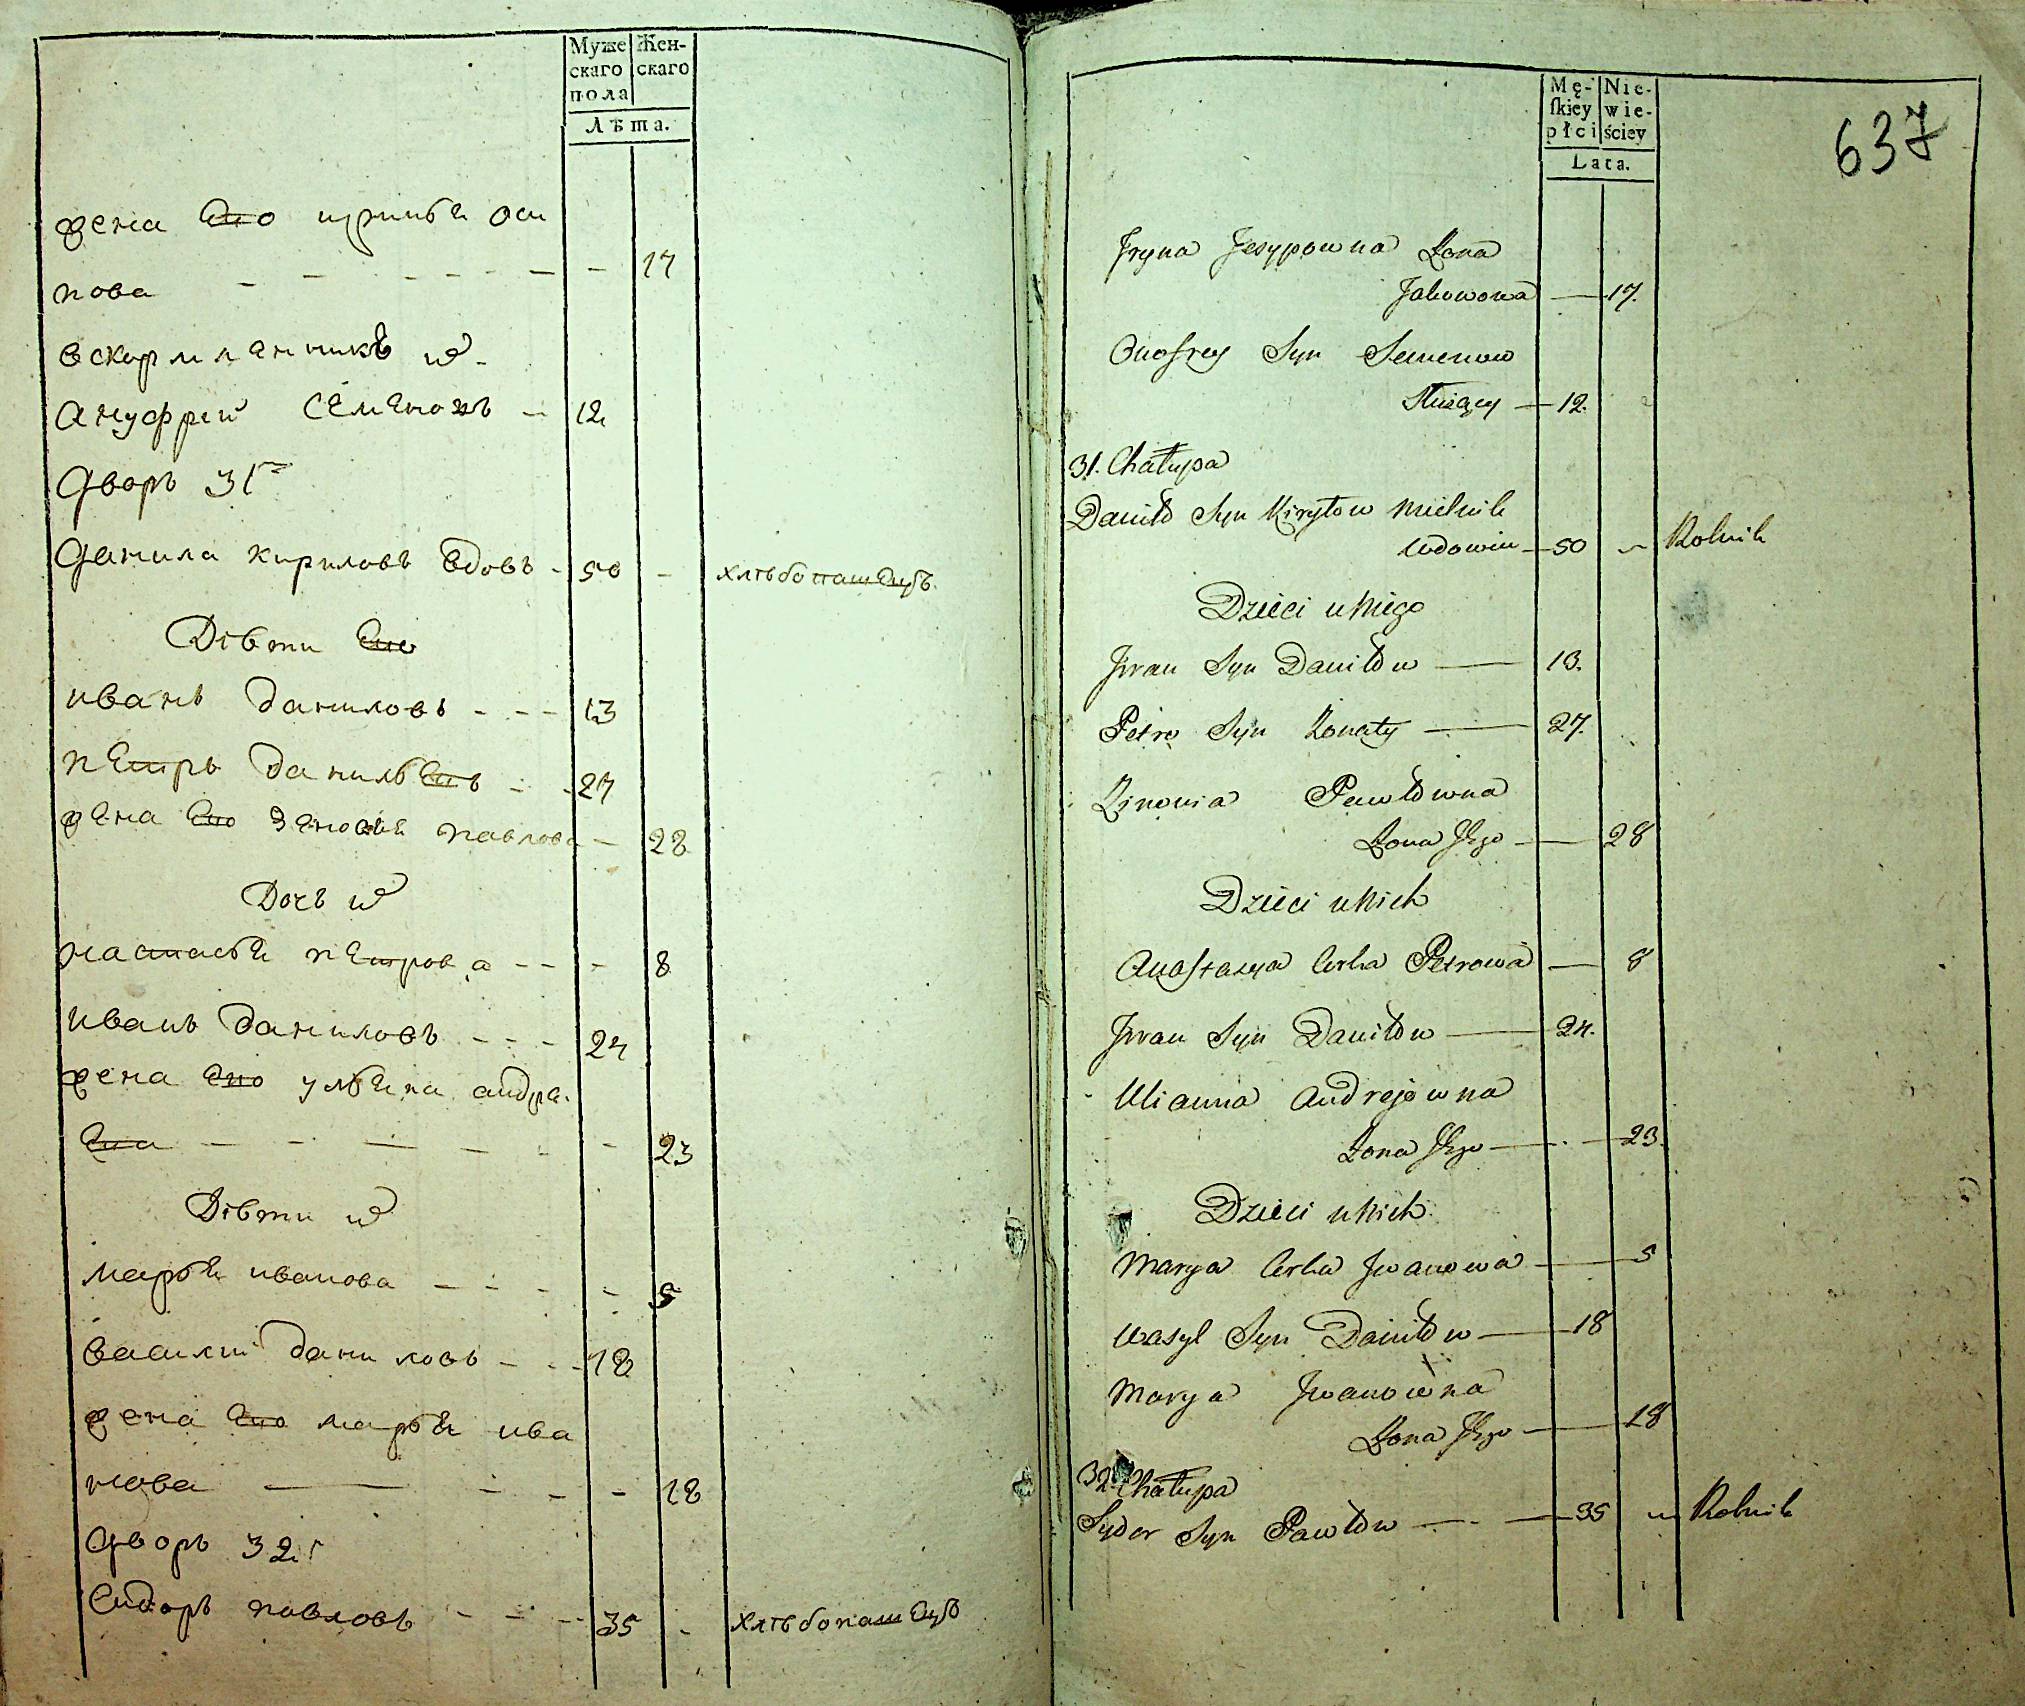 Муже
скаго
пола
Жен-
скаго
Лѣта.
жена ево ирина оси
пова - - - - - - - 17
вскормленникъ их
Ануфрей Семеновъ - 12
Дворъ 31г
Данила Кириловъ вдовъ - 50 - хлѣбопашецъ
Дѣти ево
иванъ даниловъ - - - 13
петръ данилевъ - - 27
жена ево зеновия павлова - 28
Дочь их
настасья петрова - - - 8
иванъ даниловъ - - - 24
жена ево ульяна андре.
ева - - - - - - 23
Дѣти их
марья иванова - - - - 5
василий даниловъ - - - 18
жена ево марья ива
нова - - - - - 18
Дворъ 32г
Сидоръ павловъ - - - 35 - хлѣбопашецъ
Mę-
ſkiey
płci
Nie-
wie-
ściey
Lata.
637
Jryna Jesypowna Żona
Jakowowa — 17.
Onofrey Syn Semenow
Służący — 12.
31. Chałupa
Daniło Syn Kiryłow Mielnik
Wdowiec — 50 Rolnik
Dzieci u Niego
Jwan Syn Daniłow — 13.
Petro Syn Żonaty — 27.
Zinovia Pawłowna
Żona Jego — 28
Dzieci u Nich
Anastazya Corka Petrowa — 8
Jwan Syn Daniłow — 24.
Ulianna Andrejowna
Żona Jego — 23.
Dzieci u Nich
Marya Corka Jwanowa — 5
Wasyl Syn Daniłow — 18
Marya Jwanowna
Żona Jego — 18
32. Chałupa
Sydor Syn Pawłow — 35 Rolnik